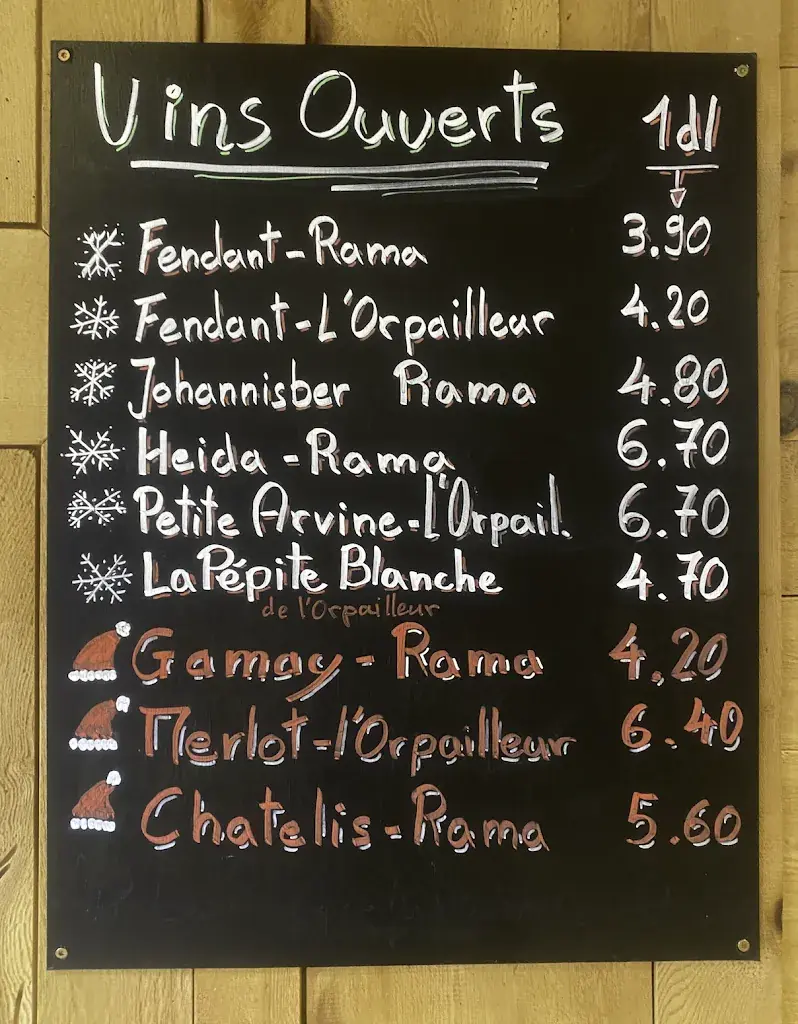 Vins Ouverts 1dl
Fendant-Rama 3.90
Fendant-L'Orpailleur 4.20
Johannisber Rama 4.80
Heida-Rama 6.70
Petite Arvine-l'Orpail. 6.70
La Pépite Blanche 4.70
de l'Orpailleur
Gamay-Rama 4.20
Merlot-l'Orpailleur 6.40
Chatelis-Rama 5.60